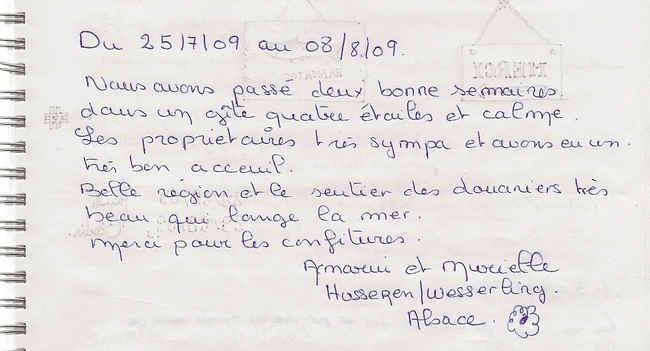 Du 25/7/09 au 08/8/09.
Nous avons passé deux bonne semaines.
dans un gîte quatre étoiles et calme.
Les propriétaires très sympa et avons eu un.
très bon acceuil.
Belle région et le sentier des douaniers très
beau qui longe la mer.
Merci pour les confitures.
et Murielle
Husseren/Wesserling.
Alsace.